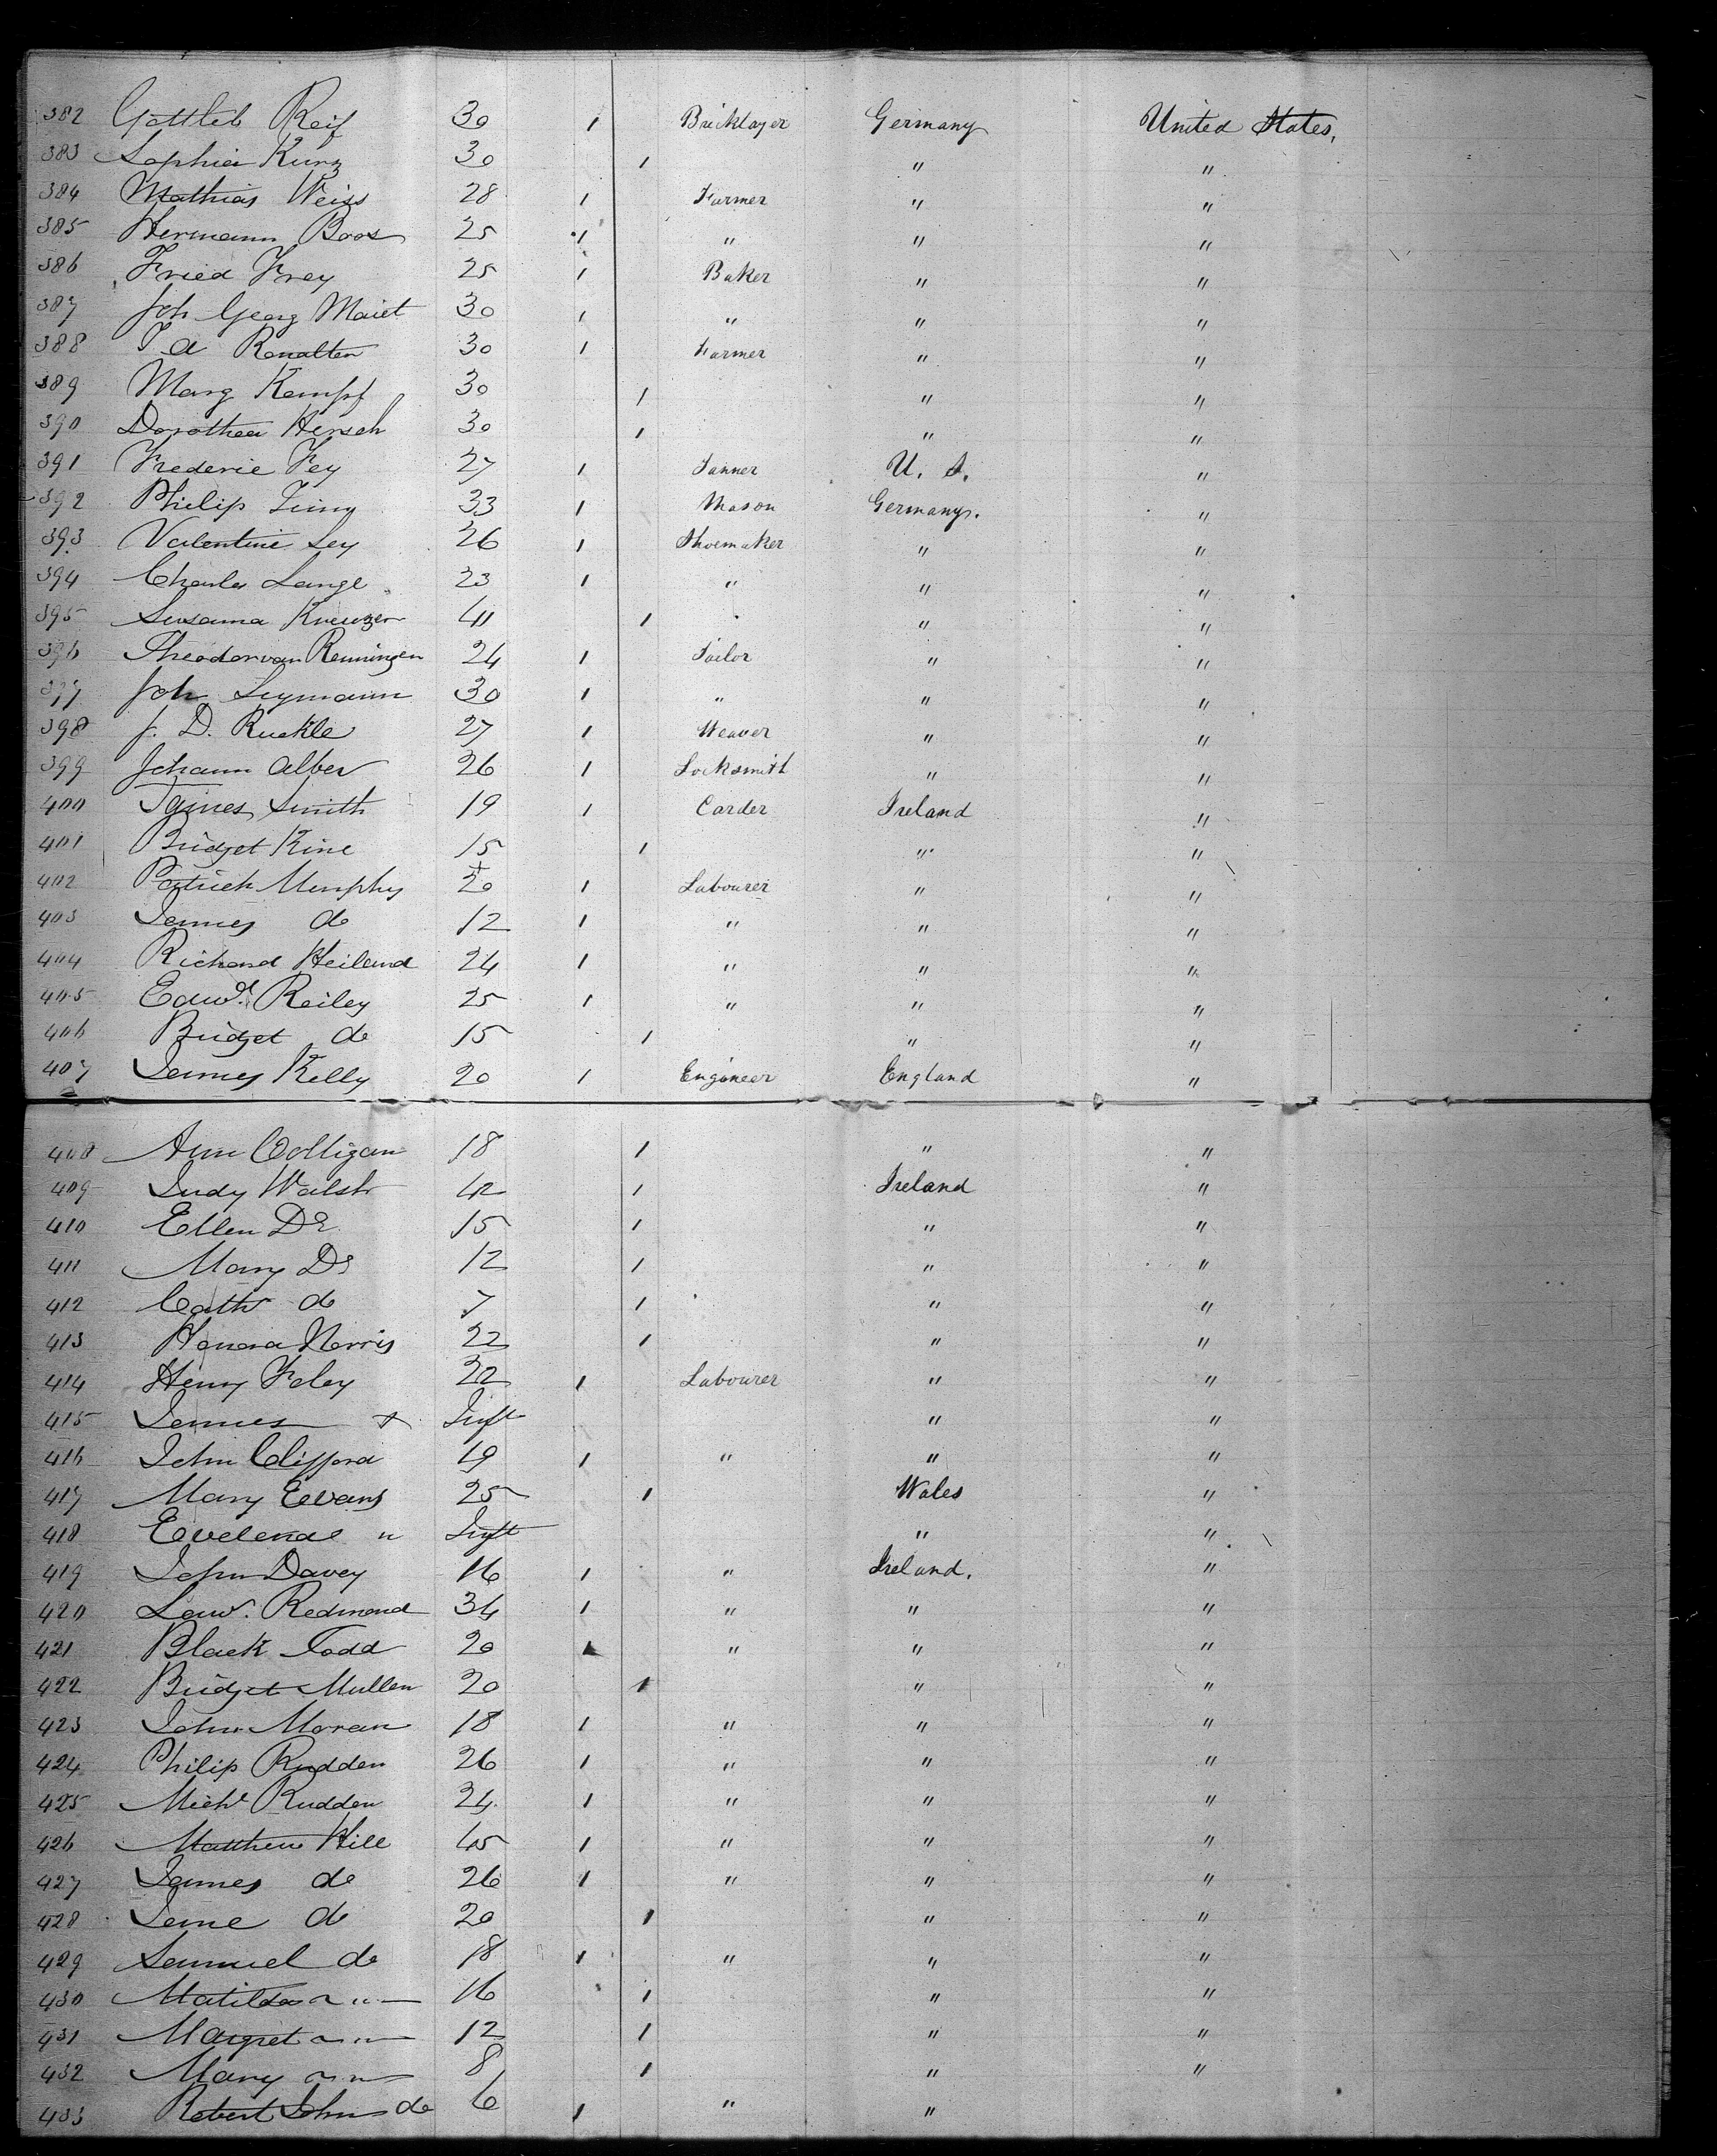 382 Gottleb Reif 30 1 Bricklayer Germany United States,
383 Sophie Kurz 30 1 " "
384 Mathias Weiss 28 1 Farmer " "
385 Hermann Boos 25 1 " " "
386 Fried Frey 25 1 Baker " "
387 Joh Georg Maiet 30 1 " " "
388 J A Ronalter 30 1 Farmer " "
389 Marg Kempf 30 1 " "
390 Dorothea Hersch 30 1 " "
391 Frederic Fey 27 1 Tanner U. S. "
392 Philip 33 1 Mason Germany. "
393 Valentine Ley 26 1 Shoemaker " "
394 Charles Lange 23 1 " " "
395 Susanna Kreuzer 41 1 " "
396 Theodor van Renningen 24 1 Tailor " "
397 Joh Leymann 30 1 " " "
398 J. D. Ruckle 27 1 Weaver " "
399 Johann Alber 26 1 Locksmith " "
400 James Smith 19 1 Carder Ireland "
401 Bridget Kine 15 1 " "
402 Patrick Murphy 20 1 Labourer " "
403 James do 12 1 " " "
404 Richard Heiland 24 1 " " "
405 Edwd. Reiley 25 1 " " "
406 Bridget do 15 1 " "
407 James Kelly 20 1 Engineer England "
408 Ann Colligan 18 1 " "
409 Judy Walsh 42 1 Ireland "
410 Ellen Do 15 1 " "
411 Mary Do 12 1 " "
412 Cathr do 7 1 " "
413 Honora Norris 22 1 " "
414 Henry Foley 22 1 Labourer " "
415 James Inft " "
416 John Clifford 19 1 " " "
417 Mary Evans 25 1 Wales "
418 Evelende " Inft " "
419 John Davey 16 1 " Ireland. "
420 Lawr. Redmond 34 1 " " "
421 Black Todd 20 1 " " "
422 Bridget Mullen 20 1 " "
423 John Moran 18 1 " " "
424 Philip Rudden 26 1 " " "
425 Michl Rudden 24. 1 " " "
426 Matthew Hill 45 1 " " "
427 James do 26 1 " " "
428 Jane do 20 1 " "
429 Samuel do 18 1 " " "
430 Matilda " 16 1 " "
431 Margret " 12 1 " "
432 Mary " 8 1 " "
433 Robert John do 6 1 " "